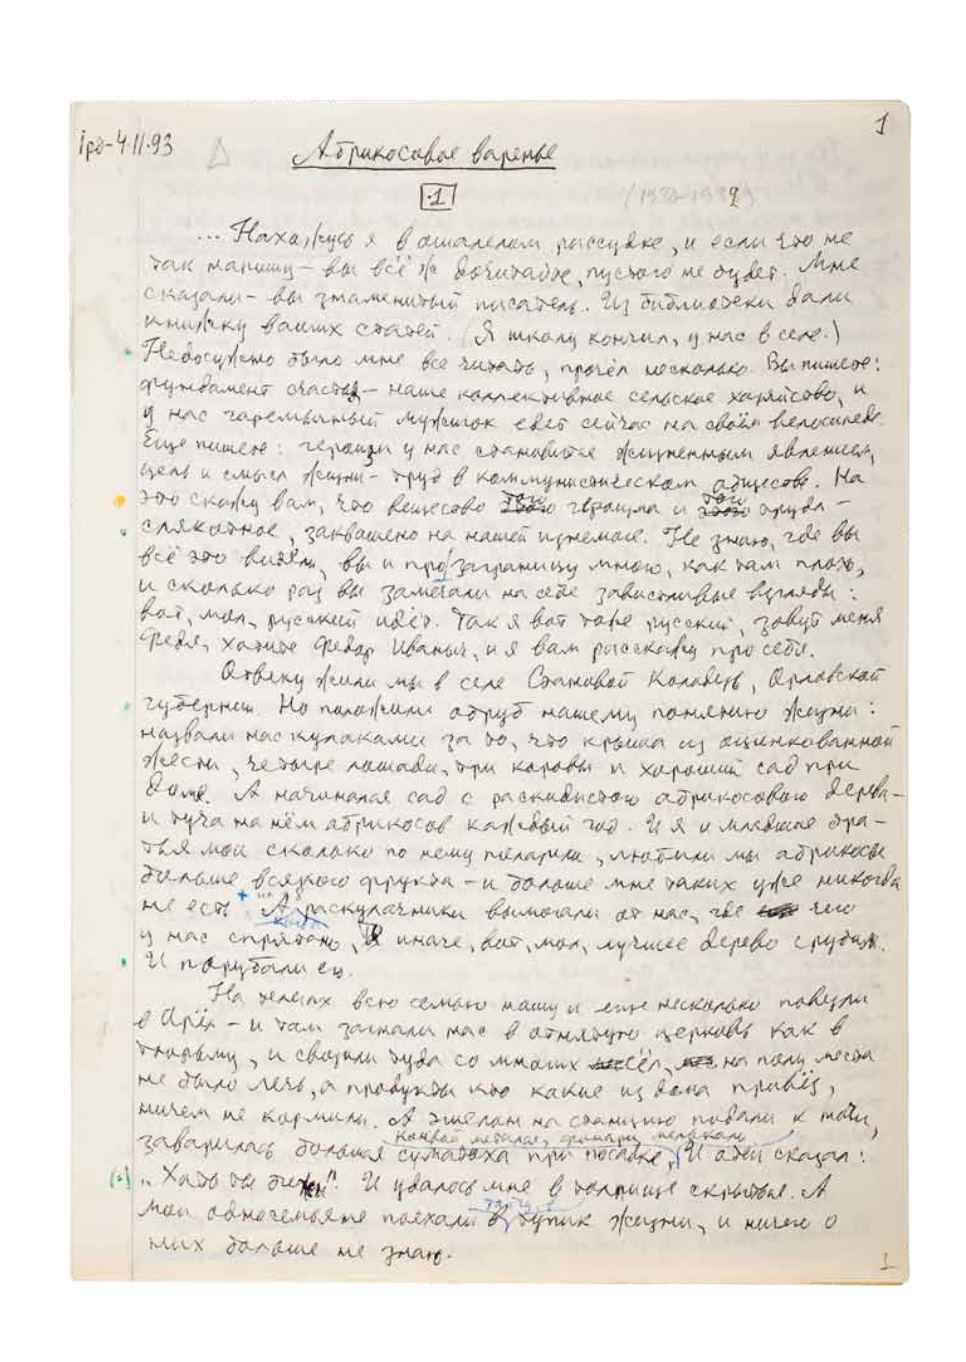 1
4.11.93
Абрикосовое варенье
1
...Нахожусь я в ошалелом рассудке, и если что не
так напишу – вы всё ж дочитайте, пустого не будет. Мне
сказали – вы знаменитый писатель. Из библиотеки дали
книжку ваших статей. (Я школу кончил, у нас в селе.)
Недосужно было мне все читать, прочёл несколько. Вы пишете:
фундамент счастья – наше коллективное сельское хозяйство, и
у нас горемычный мужичок едет сейчас на своём велосипеде.
Ещё пишете: героизм у нас становится жизненным явлением,
цель и смысл жизни – труд в коммунистическом обществе. На
это скажу вам, что вещество того героизма и того труда –
слякотное, заквашено на нашей изнемоге. Не знаю, где вы
всё это видели, вы и про заграницу много, как там плохо,
и сколько раз вы замечали на себе завистливые взгляды:
вот, мол, русский идёт. Так я вот тоже русский, зовут меня
Федя, хотите Фёдор Иваныч, и я вам расскажу про себя.
Отвеку жили мы в селе Становой Колодезь, Орловской
губернии. Но положили обруб нашему понятию жизни:
назвали нас кулаками за то, что крыша из оцинкованной
жести, четыре лошади, три коровы и хороший сад при
доме. А начинался сад с раскидистого абрикосового дерева –
и туча на нём абрикосов каждый год. И я и младшие бра-
тья мои сколько по нему полазили, любили мы абрикосы
больше всякого фрукта – и больше мне таких уже никогда
не есть. А раскулачники вымогали от нас, где чего
у нас спрятано, иначе, вот, мол, лучшее дерево срубим.
И порубали его.
На телегах всю семью нашу и ещё несколько повезли
в Орёл – и там загнали нас в отнятую церковь как в
тюрьму, и свозили туда со многих сёл, на полу места
не было лечь, а продукты кто какие из дома привёз,
ничем не кормили. А эшелон на станцию подали к ночи,
конвой метался, фонари мелькали
заварилась большая суматоха при посадке, И отец сказал:
„Хоть ты беги". И удалось мне в толпище скрыться. А
мои односемьяне поехали в тупик жизни, и ничего о
них больше не знаю.
1